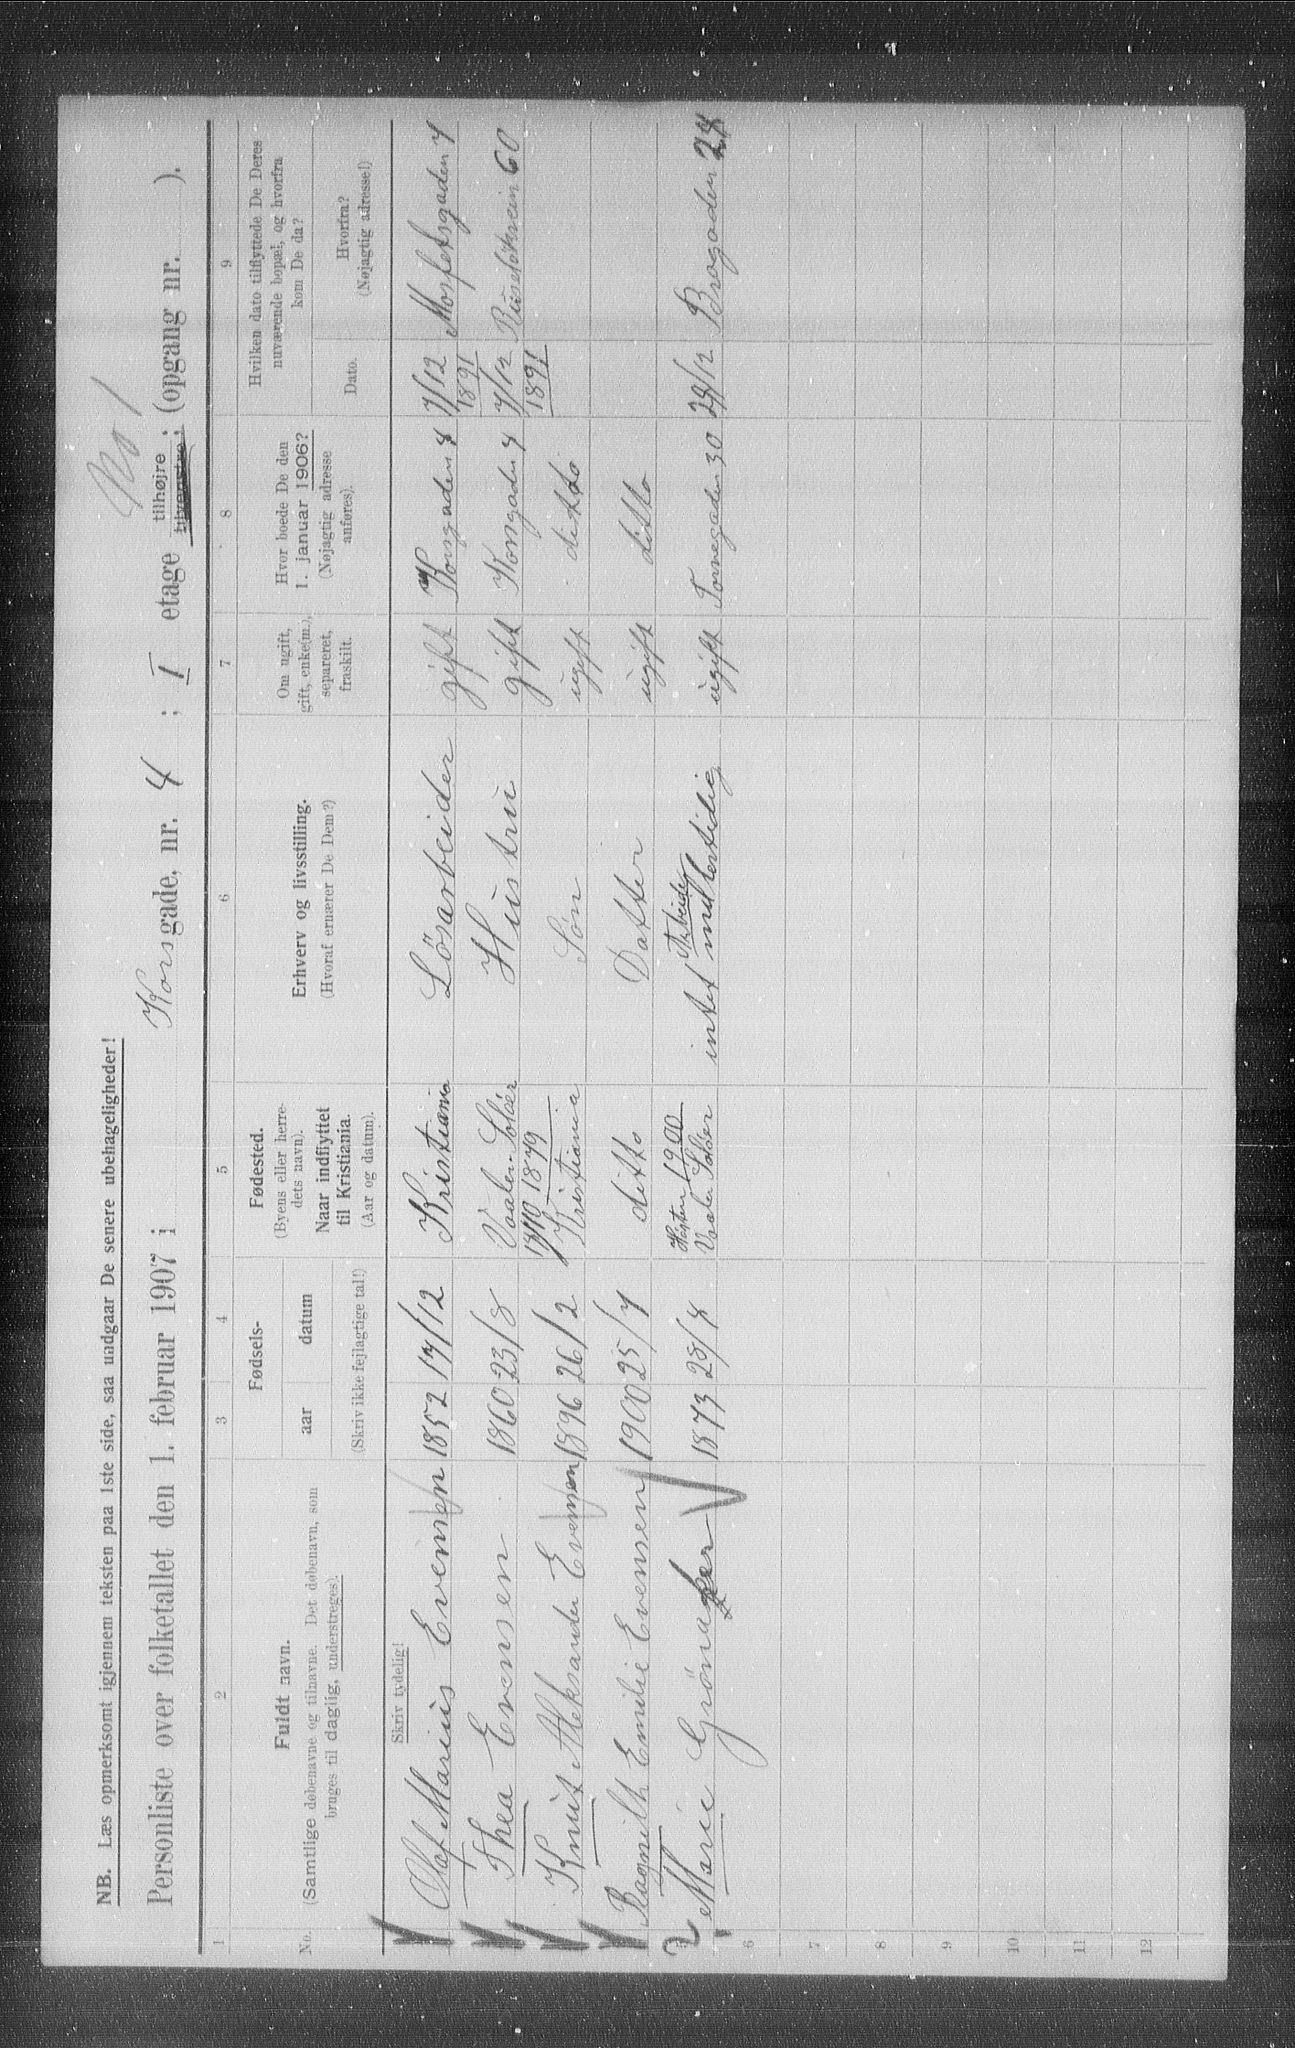 No 1
NB. Læs opmerksomt igjennem teksten paa 1ste side, saa undgaar De senere ubehageligheder!
Personliste over folketallet den 1. februar 1907 i Korsgade, nr. 4 ; I etage tilhøjre tilvenstre ; (opgang nr. ).
1 2 3 4 5 6 7 8 9
No.
Fuldt navn.
(Samtlige døbenavne og tilnavne. Det døbenavn, som
bruges til daglig, understreges).
Fødsels-
aar datum
(Skriv ikke fejlagtige tal!)
Fødested.
(Byens eller herre-
dets navn).
Naar indflyttet
til Kristiania.
(Aar og datum).
Erhverv og livsstilling.
(Hvoraf ernærer De Dem?)
Om ugift,
gift, enke(m.),
separeret,
fraskilt.
Hvor boede De den
1. januar 1906?
(Nøjagtig adresse
anføres).
Hvilken dato tilflyttede De Deres
nuværende bopæl, og hvorfra
kom De da?
Dato.
Hvorfra?
(Nøjagtig adresse!)
Skriv tydelig!
Olaf Marius Evensen 1852 17/12 Kristiania Lösarbeider gift Korsgaden 4 7/12 1891 Mosfetsgaden 7
Thea Evensen 1860 23/8 Vaaler Solöer 17/10 1879 Hustru gift Korsgaden 4 7/12 1891 Ruseløkvein 60
Knut Aleksander Evensen 1896 26/2 Kristiania Sön ugift ditto
Ragnilh Emilie Evensen 1900 25/7 ditto Datter ugift ditto
5 Marie Grönaker 1873 25/8 Høsten 1900 Vaaler Solöer Arbeider intet midlertidig ugift Torvegaden 30 28/12 Brogaden 28
6
7
8
9
10
11
12